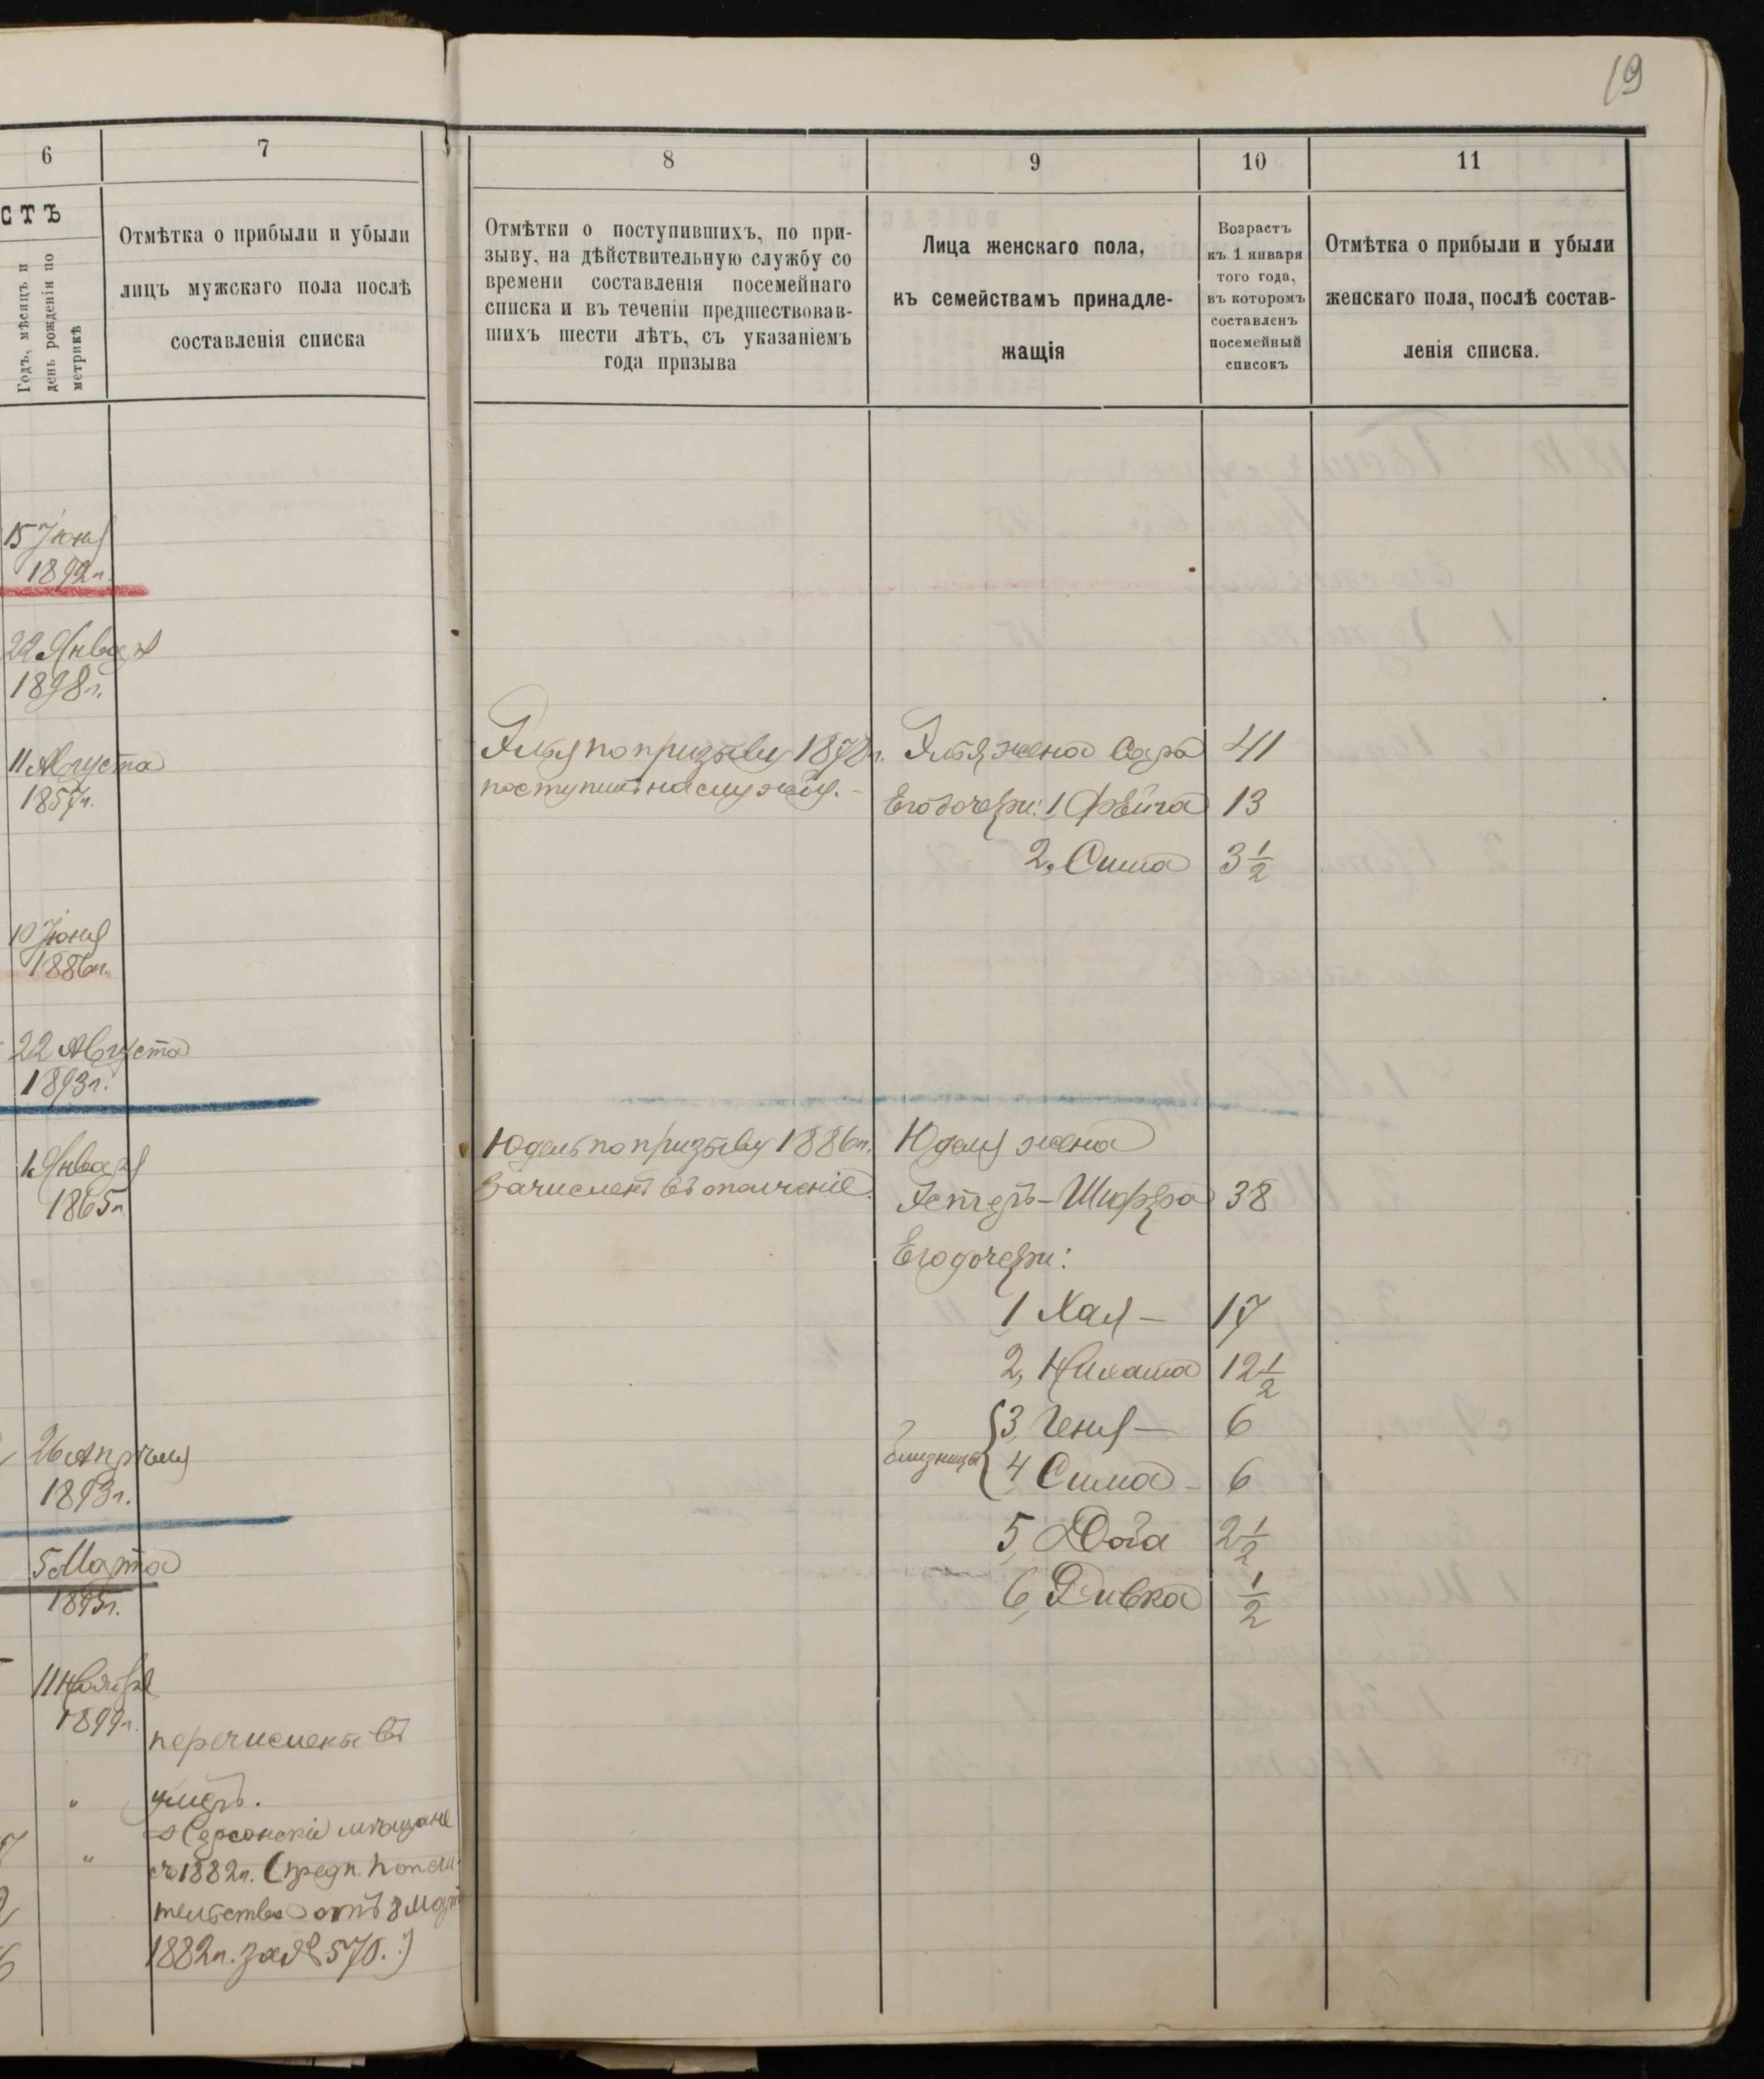 19
6
7
8
9
10
11
СТЪ
Годъ, мѣсяцъ и
день рожденія по
метрикѣ
Отмѣтка о прибыли и убыли
лицъ мужскаго пола послѣ
составленія списка
Отмѣтки о поступившихъ, по при-
зыву, на дѣйствительную службу со
времени составленія посемейнаго
списка и въ теченіи предшествовав-
шихъ шести лѣтъ, съ указаніемъ
года призыва
Лица женскаго пола,
къ семействамъ принадле-
жащія
Возрастъ
къ 1 января
того года,
въ которомъ
составленъ
посемейный
списокъ
Отмѣтка о прибыли и убыли
женскаго пола, послѣ состав-
ленія списка.
15 Іюня
1892г.
22 Января
1898г.
11 Августа
1857г.
Элья по призыву 1878г.
поступилъ на службу.-
Элья жена Сара 41
Его дочери: 1, Фейга 13
2, Сима 3 1/2
10 Іюня
1886г.
22 Августа
1893г.
1 Января
1865г
Юдель по призыву 1886г.
зачисленъ въ ополченіе.
Юделя жена
Эстеръ-Шифра 38
Его дочери:
1 Хая - 17
2, Нихама 12 1/2
близницы
3, Геня - 6
4 Сима - 6
5, Доба 2 1/2
6, Ривка 1/2
26 Апрѣля
1893г.
5 Марта
1895г.
11 Ноября
1899г.
перечислены въ
" умеръ.
Херсонскіе мѣщане
" съ 1882г. (предп. попечи-
тельства отъ 8 Март
1882г. за № 570.)